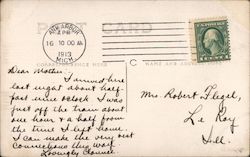 POST CARD
ANN ARBOR
16 10 00 AM
1913
MICH.
CORRESPONDENCE HERE
NAME AND ADDRESS
C
Dear Mother
I arrived here
last night about half
past nine o'clock I was
just off the train about
one hour & a half from
the time I left home.
I can make the very best
Connections this way.
Lovingly
Mrs. Robert
Le Roy
Ill